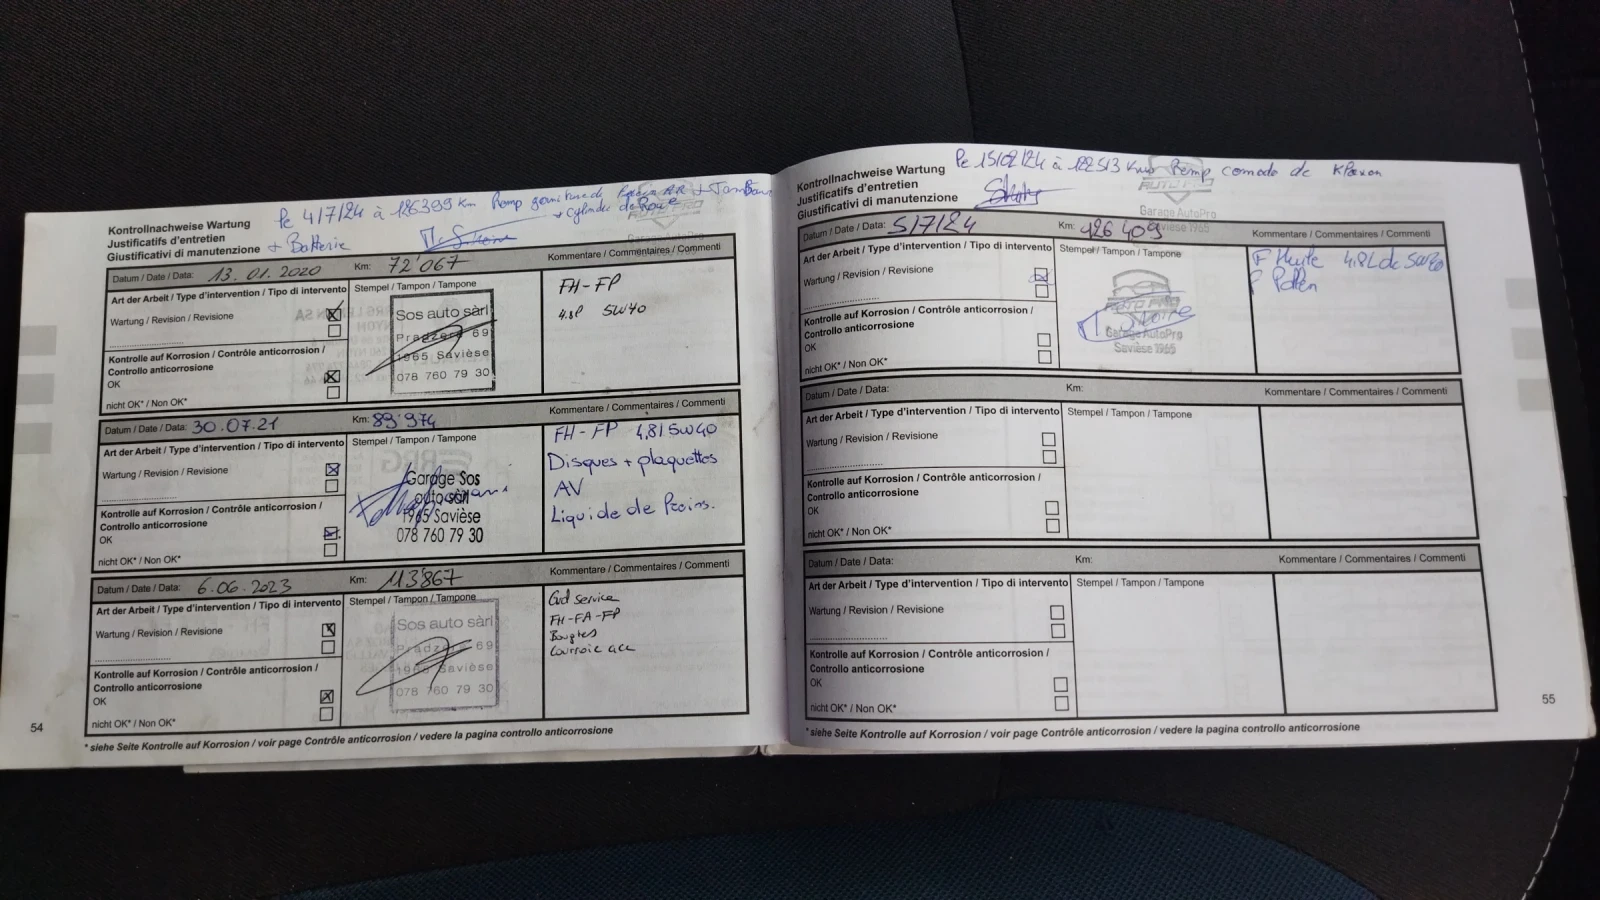 Kontrollnachweise Wartung
Justificatifs d'entretien
Giustificativi di manutenzione
Le 4/7/24 à 126399 Km Remp garniture de frein AR + Tambour
+ cylindre de Roue
+ Batterie
Datum / Date / Data: 13.01.2020 Km: 72'067 Kommentare / Commentaires / Commenti
Art der Arbeit / Type d'intervention / Tipo di intervento
Stempel / Tampon / Tampone
Wartung / Revision / Revisione
Kontrolle auf Korrosion / Contrôle anticorrosion /
Controllo anticorrosione
OK
nicht OK* / Non OK*
Sos auto sàrl
Pradzera 69
1965 Savièse
078 760 79 30
FH-FP
4.8l 5W40
Datum / Date / Data: 30.07.21 Km: 89'974 Kommentare / Commentaires / Commenti
Art der Arbeit / Type d'intervention / Tipo di intervento
Stempel / Tampon / Tampone
Wartung / Revision / Revisione
Kontrolle auf Korrosion / Contrôle anticorrosion /
Controllo anticorrosione
OK
nicht OK* / Non OK*
Garage Sos
auto sàrl
1965 Savièse
078 760 79 30
FH-FP 4,8l 5W40
Disques + plaquettes
AV
Liquide de Freins.
Datum / Date / Data: 6.06.2023 Km: 113'867 Kommentare / Commentaires / Commenti
Art der Arbeit / Type d'intervention / Tipo di intervento
Stempel / Tampon / Tampone
Wartung / Revision / Revisione
Kontrolle auf Korrosion / Contrôle anticorrosion /
Controllo anticorrosione
OK
nicht OK* / Non OK*
Sos auto sàrl
Pradzera 69
1965 Savièse
078 760 79 30
Gvd service
FH-FA-FP
Bougies
Courroie acc
* siehe Seite Kontrolle auf Korrosion / voir page Contrôle anticorrosion / vedere la pagina controllo anticorrosione
54
Kontrollnachweise Wartung
Justificatifs d'entretien
Giustificativi di manutenzione
Le 15/02/24 à 122513 Km Remp comodo de Klaxon
AUTO PRO
Garage AutoPro
Savièse 1965
Datum / Date / Data: 5/7/24 Km: 126 409 Kommentare / Commentaires / Commenti
Art der Arbeit / Type d'intervention / Tipo di intervento
Stempel / Tampon / Tampone
Wartung / Revision / Revisione
Kontrolle auf Korrosion / Contrôle anticorrosion /
Controllo anticorrosione
OK
nicht OK* / Non OK*
AUTO PRO
Garage AutoPro
Savièse 1965
F Huile 4.8L de 5W30
F Pollen
Datum / Date / Data: Km: Kommentare / Commentaires / Commenti
Art der Arbeit / Type d'intervention / Tipo di intervento
Stempel / Tampon / Tampone
Wartung / Revision / Revisione
Kontrolle auf Korrosion / Contrôle anticorrosion /
Controllo anticorrosione
OK
nicht OK* / Non OK*
Datum / Date / Data: Km: Kommentare / Commentaires / Commenti
Art der Arbeit / Type d'intervention / Tipo di intervento
Stempel / Tampon / Tampone
Wartung / Revision / Revisione
Kontrolle auf Korrosion / Contrôle anticorrosion /
Controllo anticorrosione
OK
nicht OK* / Non OK*
* siehe Seite Kontrolle auf Korrosion / voir page Contrôle anticorrosion / vedere la pagina controllo anticorrosione
55